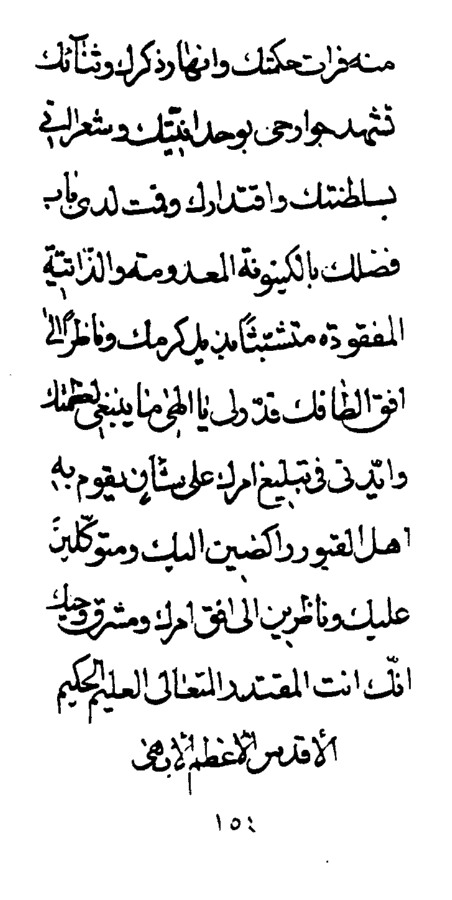 منه فرات حكمتك و انهار ذكرك و ثنآئك
تشهد جوارحى بوحدانيّتك و شعراتى
بسلطنتك و اقتدارك وقمت لدى باب
فضلك بالكينونة المعدومة و الذّاتيّة
المفقودة متشبّثاً بذيل كرمك و ناظراً الى
افق الطافك قدّر لى يا الهى ما ينبغى لعظمتك
و ايّدنى فى تبليغ امرك على شأنٍ يقوم به
اهل القبور راكضين اليك و متوكّلين
عليك و ناظرين الى افق امرك و مشرق وحيك
انّك انت المقتدر المتعالى العليم الحكيم
الأقدس الأعظم الأبهى
١٥٤